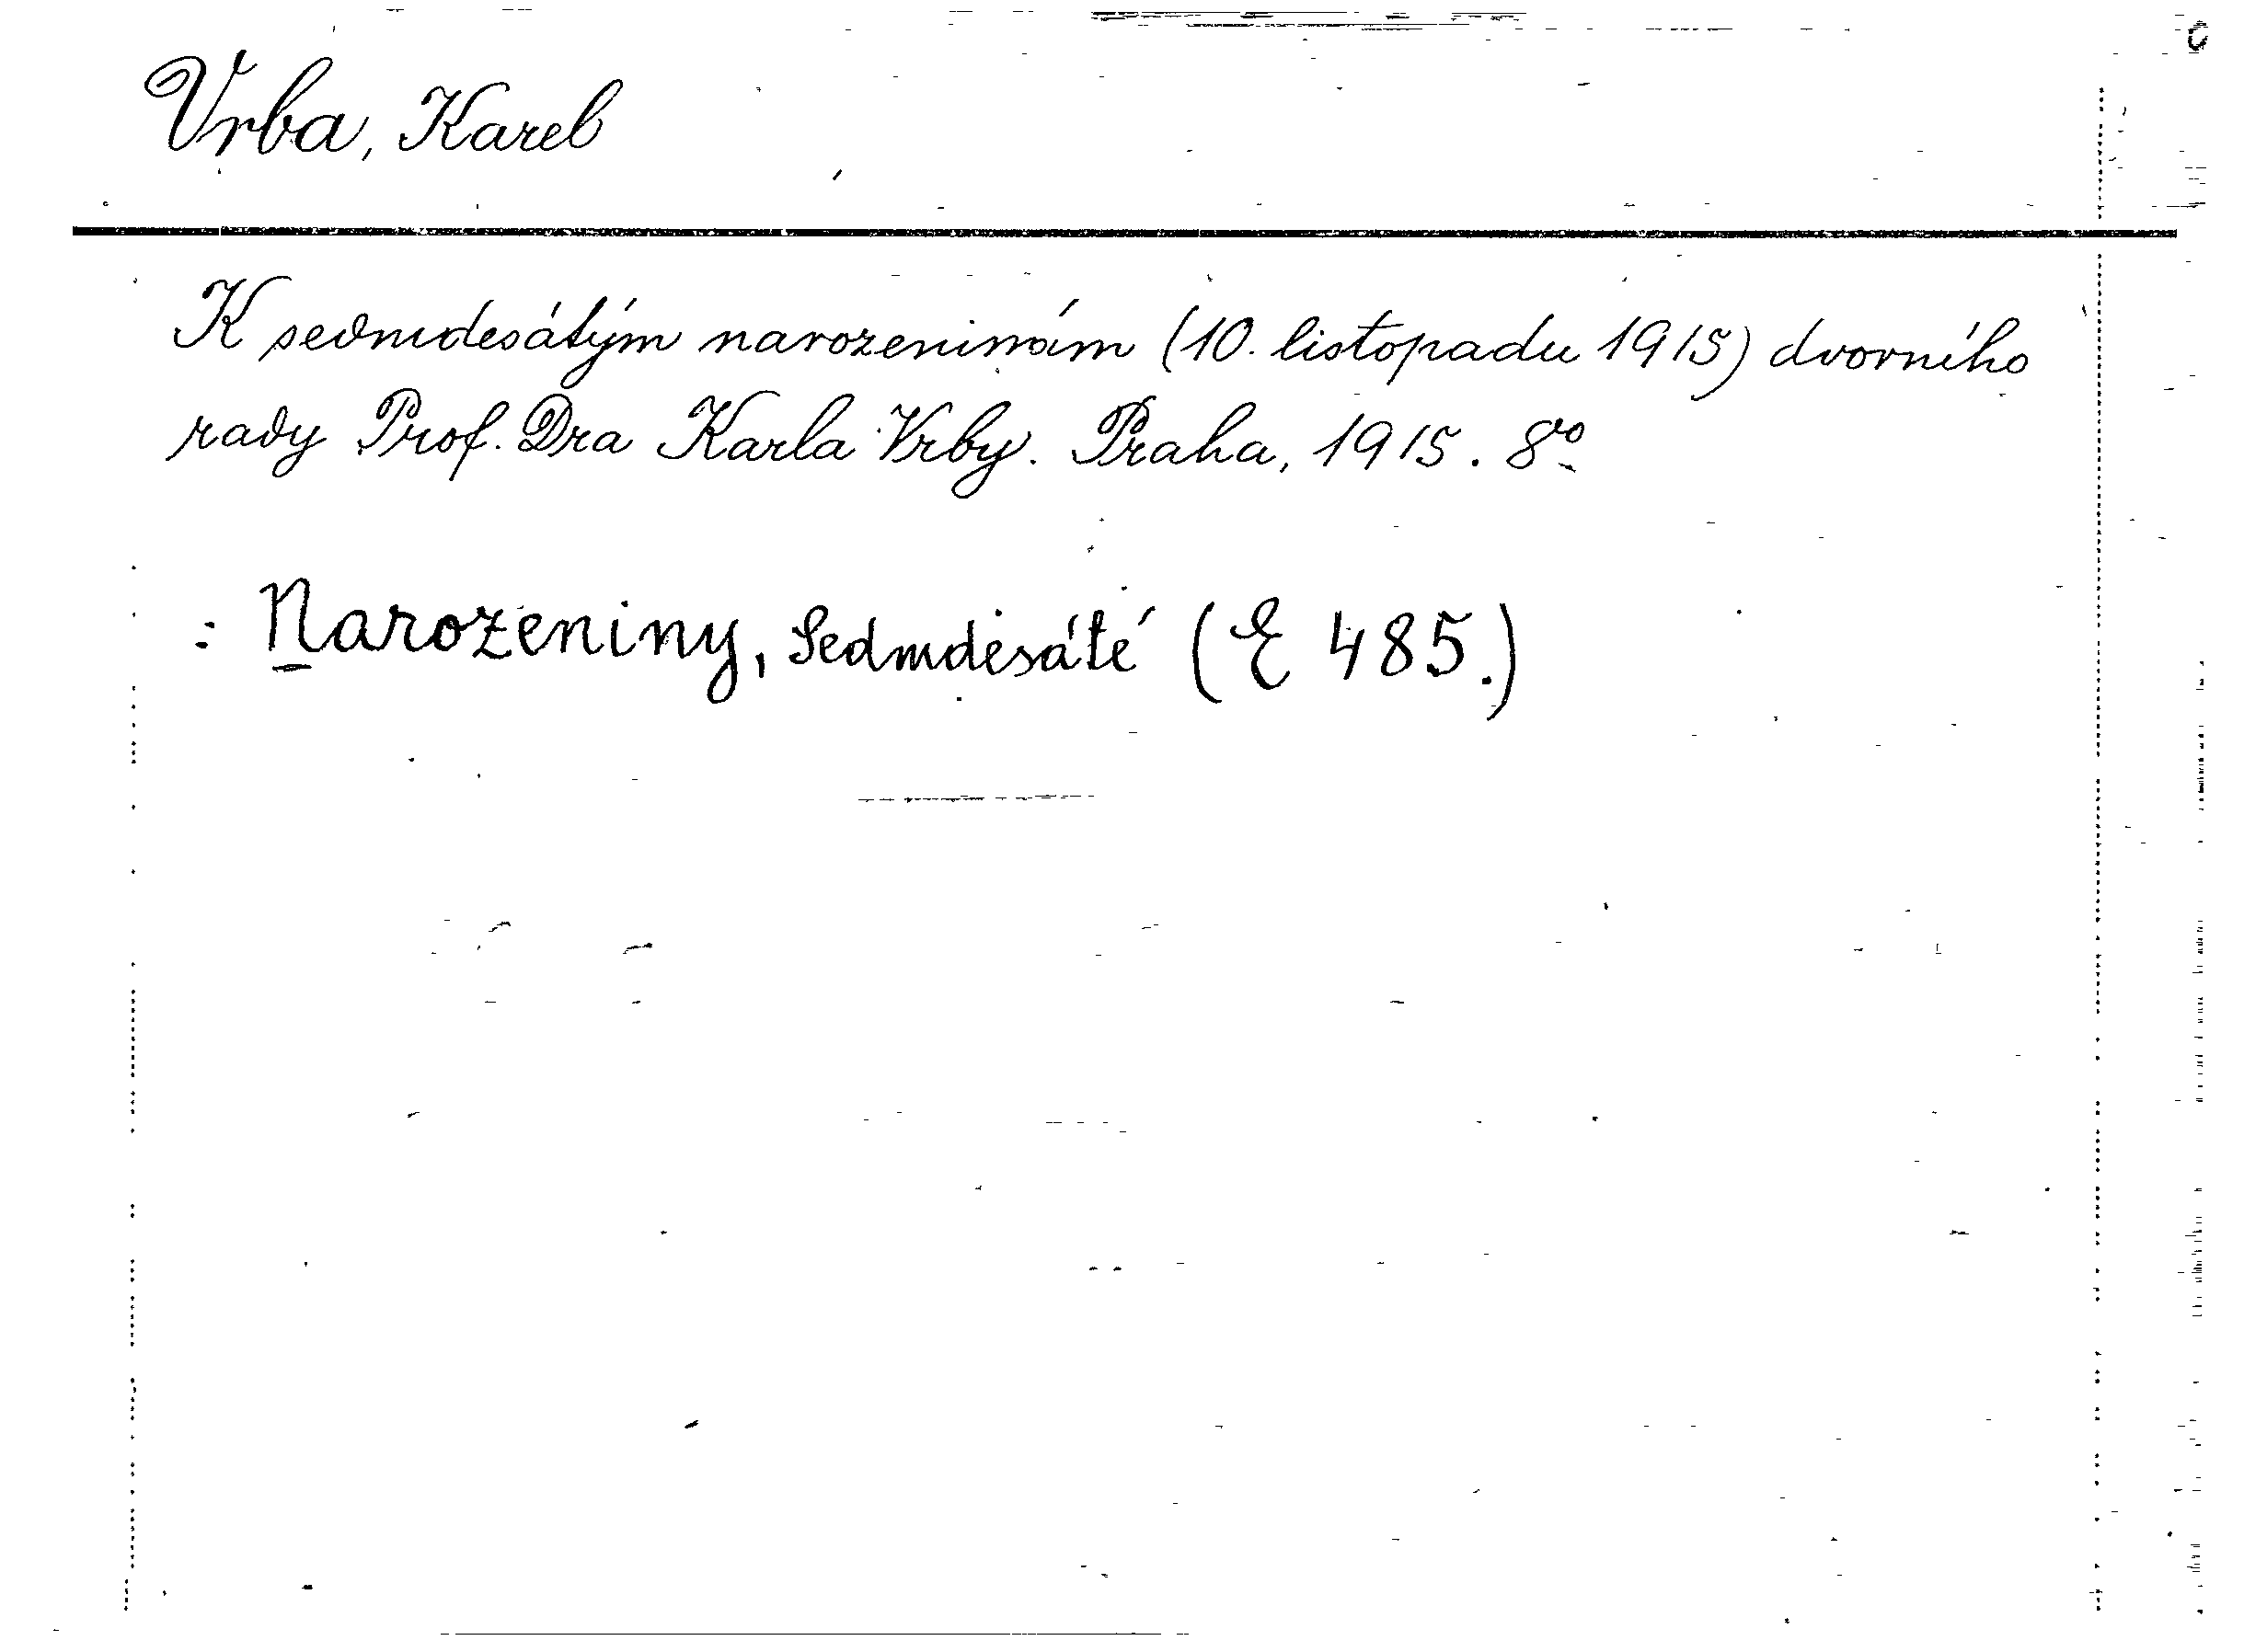 Vrba, Karel
K sedmdesátým narozeninám (10. listopadu 1915) dvorního
rady Prof. Dra Karla Vrby. Praha, 1915. 8vo
: Narozeniny, Sedmdesáté (E 485.)